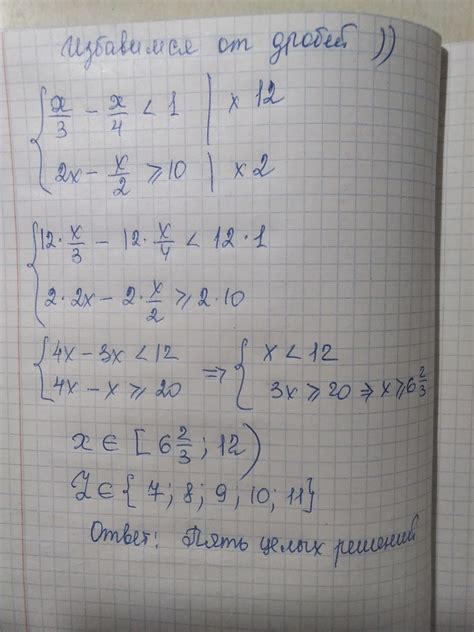 Избавимся от дробей ))
{ x/3 - x/4 < 1 | x 12
{ 2x - x/2 ⩾ 10 | x 2
{ 12 · x/3 - 12 · x/4 < 12 · 1
{ 2 · 2x - 2 · x/2 ⩾ 2 · 10
{ 4x - 3x < 12 ⇒ { x < 12
{ 4x - x ⩾ 20 { 3x ⩾ 20 ⇒ x ⩾ 6 2/3
x ∈ [ 6 2/3 ; 12 )
Z ∈ { 7; 8; 9; 10; 11}
Ответ: Пять целых решений